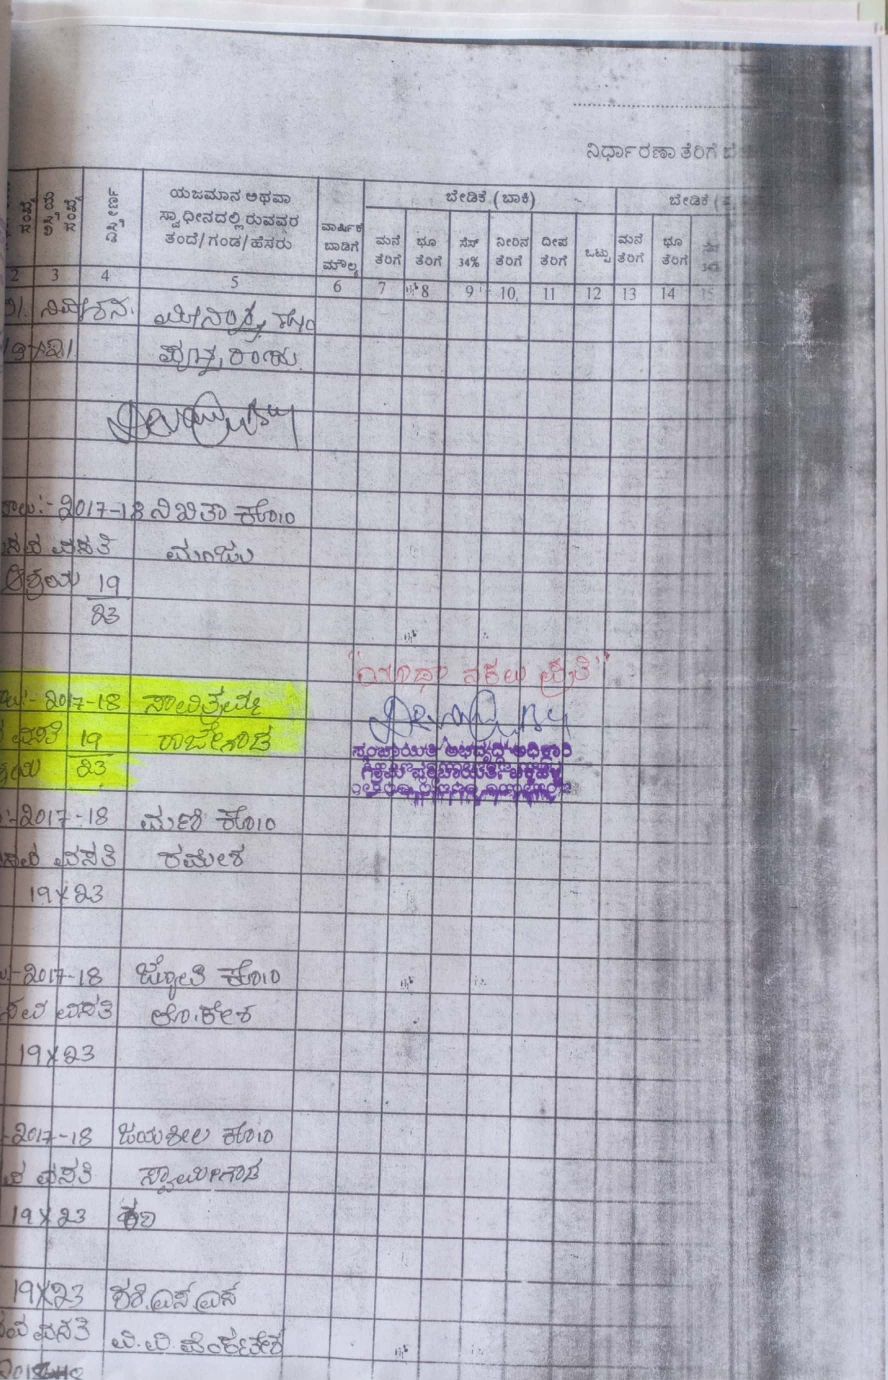 ನಿರ್ಧಾರಣಾ ತೆರಿಗೆ
ಸಂಖ್ಯೆ
ವಿಸ್ತೀರ್ಣ
ಯಜಮಾನ ಅಥವಾ
ಸ್ವಾಧೀನದಲ್ಲಿರುವವರ
ತಂದೆ/ಗಂಡ/ಹೆಸರು
ವಾರ್ಷಿಕ
ಬಾಡಿಗೆ
ಮೌಲ್ಯ
ಬೇಡಿಕೆ (ಬಾಕಿ)
ಬೇಡಿಕೆ (
ಮನೆ ತೆರಿಗೆ
ಭೂ ತೆರಿಗೆ
ಸೆಸ್ 34%
ನೀರಿನ ತೆರಿಗೆ
ದೀಪ ತೆರಿಗೆ
ಒಟ್ಟು
ಮನೆ ತೆರಿಗೆ
ಭೂ ತೆರಿಗೆ
2 3 4 5 6 7 8 9 10 11 12 13 14 15
ನಿವೇಶನ.
2017-18 ನಿಖಿತಾ ಕೋಂ
ವಸತಿ ಮಂಜು
ಆಶ್ರಯ 19
23
"ಯಥಾ ನಕಲು ಪ್ರತಿ"
2017-18 ಸಾವಿತ್ರಮ್ಮ
19 ರಾಜೇಗೌಡ
23
ಪಂಚಾಯಿತಿ ಅಭಿವೃದ್ಧಿ ಅಧಿಕಾರಿ
ಗ್ರಾಮ ಪಂಚಾಯಿತಿ
2017-18 ಮಣಿ ಕೋಂ
ವಸತಿ ರಮೇಶ
19X23
2017-18 ಜ್ಯೋತಿ ಕೋಂ
ವಸತಿ ಲೋಕೇಶ
19X23
2017-18 ಜಯಶೀಲ ಕೋಂ
ವಸತಿ ಸ್ವಾಮೀಗೌಡ
19X23
19X23 ಶಶಿ.ಎಸ್.ಎಸ್
ವಸತಿ ವಿ.ವಿ.ವೆಂಕಟೇಶ